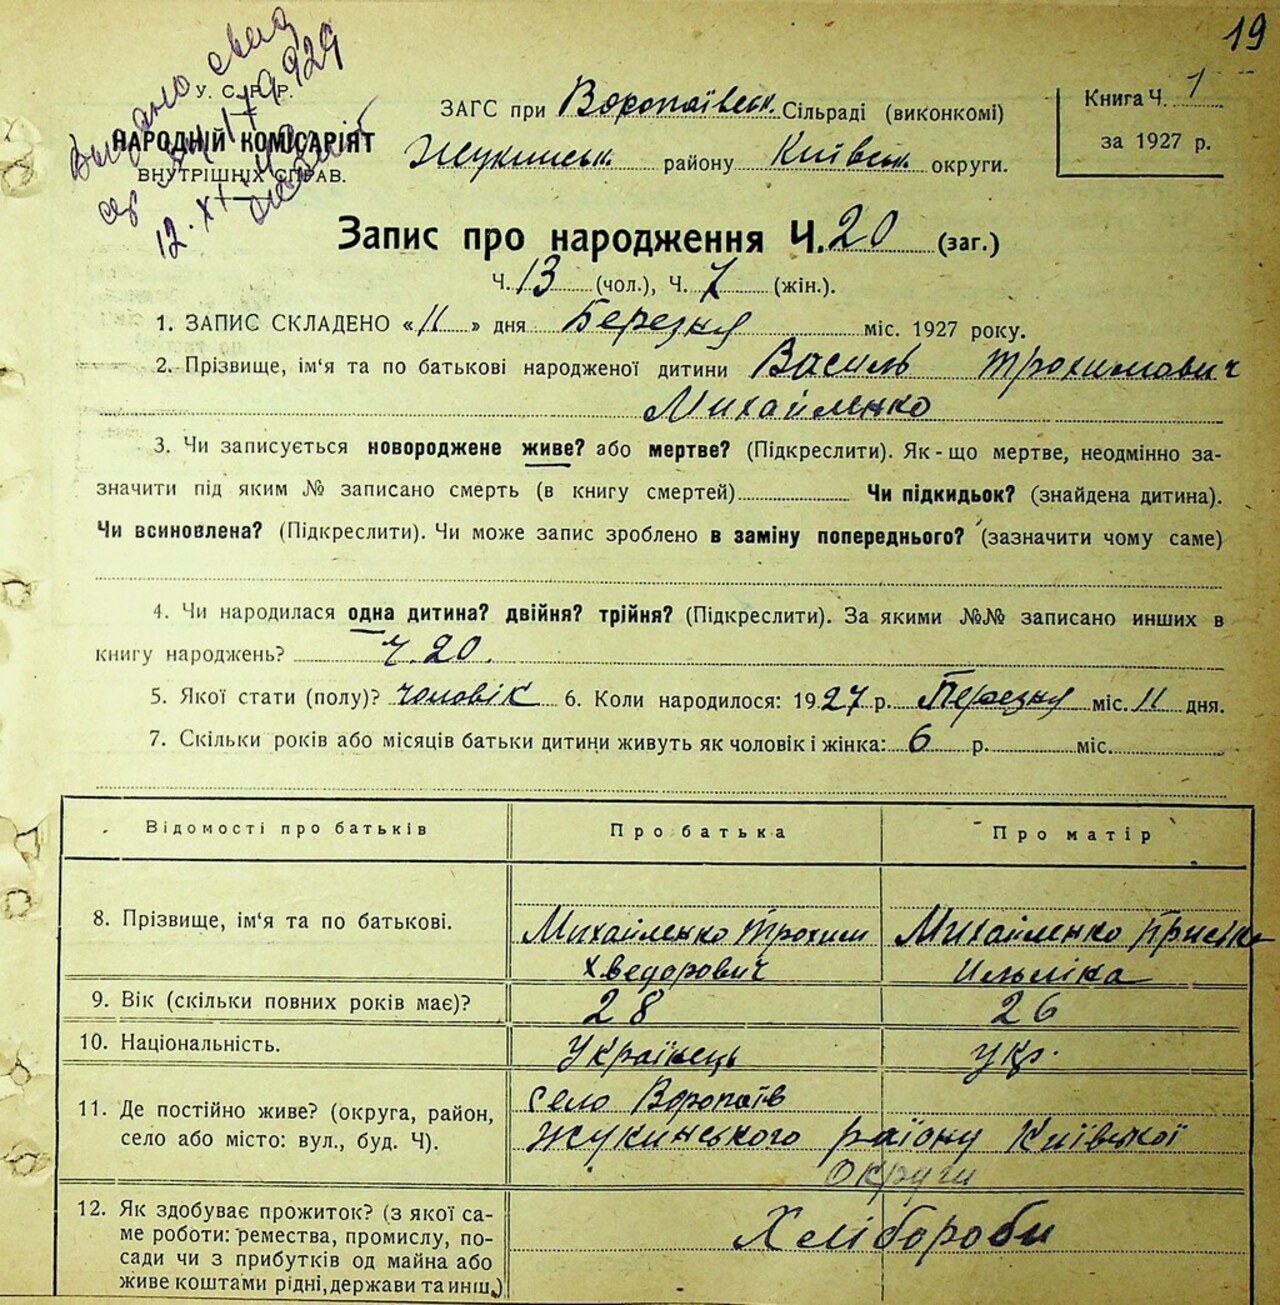 19
Видано
У. С. Р. Р.
НАРОДНІЙ КОМІСАРІЯТ
ВНУТРІШНІХ СПРАВ.
12. XI
ЗАГС при Воропаївськ. Сільраді (виконкомі)
Жукинськ району Київськ округи.
Книга Ч. 1
за 1927 р.
Запис про народження Ч. 20 (заг.)
Ч. 13 (чол.), Ч. 7 (жін.).
1. ЗАПИС СКЛАДЕНО « 11 » дня Березня міс. 1927 року.
2. Прізвище, ім‘я та по батькові народженої дитини Василь Трохимович
Михайленко
3. Чи записується новороджене живе? або мертве? (Підкреслити). Як-що мертве, неодмінно за-
значити під яким № записано смерть (в книгу смертей) Чи підкидьок? (знайдена дитина).
Чи всиновлена? (Підкреслити). Чи може запис зроблено в заміну попереднього? (зазначити чому саме)
4. Чи народилася одна дитина? двійня? трійня? (Підкреслити). За якими №№ записано инших в
книгу народжень? Ч. 20.
5. Якої стати (полу)? чоловік 6. Коли народилося: 1927 р. Березня міс. 11 дня.
7. Скільки років або місяців батьки дитини живуть як чоловік і жінка: 6 р. міс.
Відомості про батьків Про батька Про матір
8. Прізвище, ім‘я та по батькові. Михайленко Трохим Михайленко Приська
Хведорович
9. Вік (скільки повних років має)? 28 26
10. Національність. Українець укр.
11. Де постійно живе? (округа, район, село Воропаїв
село або місто: вул., буд. Ч). Жукинського району Київської
Округи
12. Як здобуває прожиток? (з якої са- Хлібороби
ме роботи: ремества, промислу, по-
сади чи з прибутків од майна або
живе коштами рідні, держави та инш.)